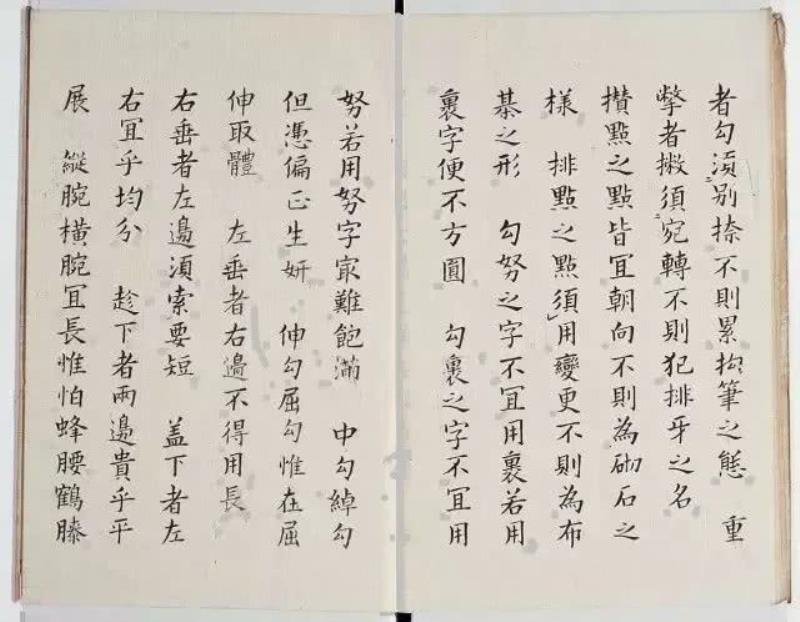 者勾湏別捺不則累拘筆之態　重
撆者撇須宛轉不則犯排牙之名
攢點之點皆冝朝向不則為砌石之
樣　排點之點須用變更不則為布
棊之形　勾努之字不冝用裹若用
裹字便不方圓　勾裹之字不冝用
努若用努字㝡難飽滿　中勾綽勾
但憑偏正生妍　伸勾屈勾惟在屈
伸取體　左垂者右邊不得用長
右垂者左邊湏索要短　盖下者左
右冝乎均分　趁下者兩邊貴乎平
展　縱腕橫腕冝長惟怕蜂腰鶴膝